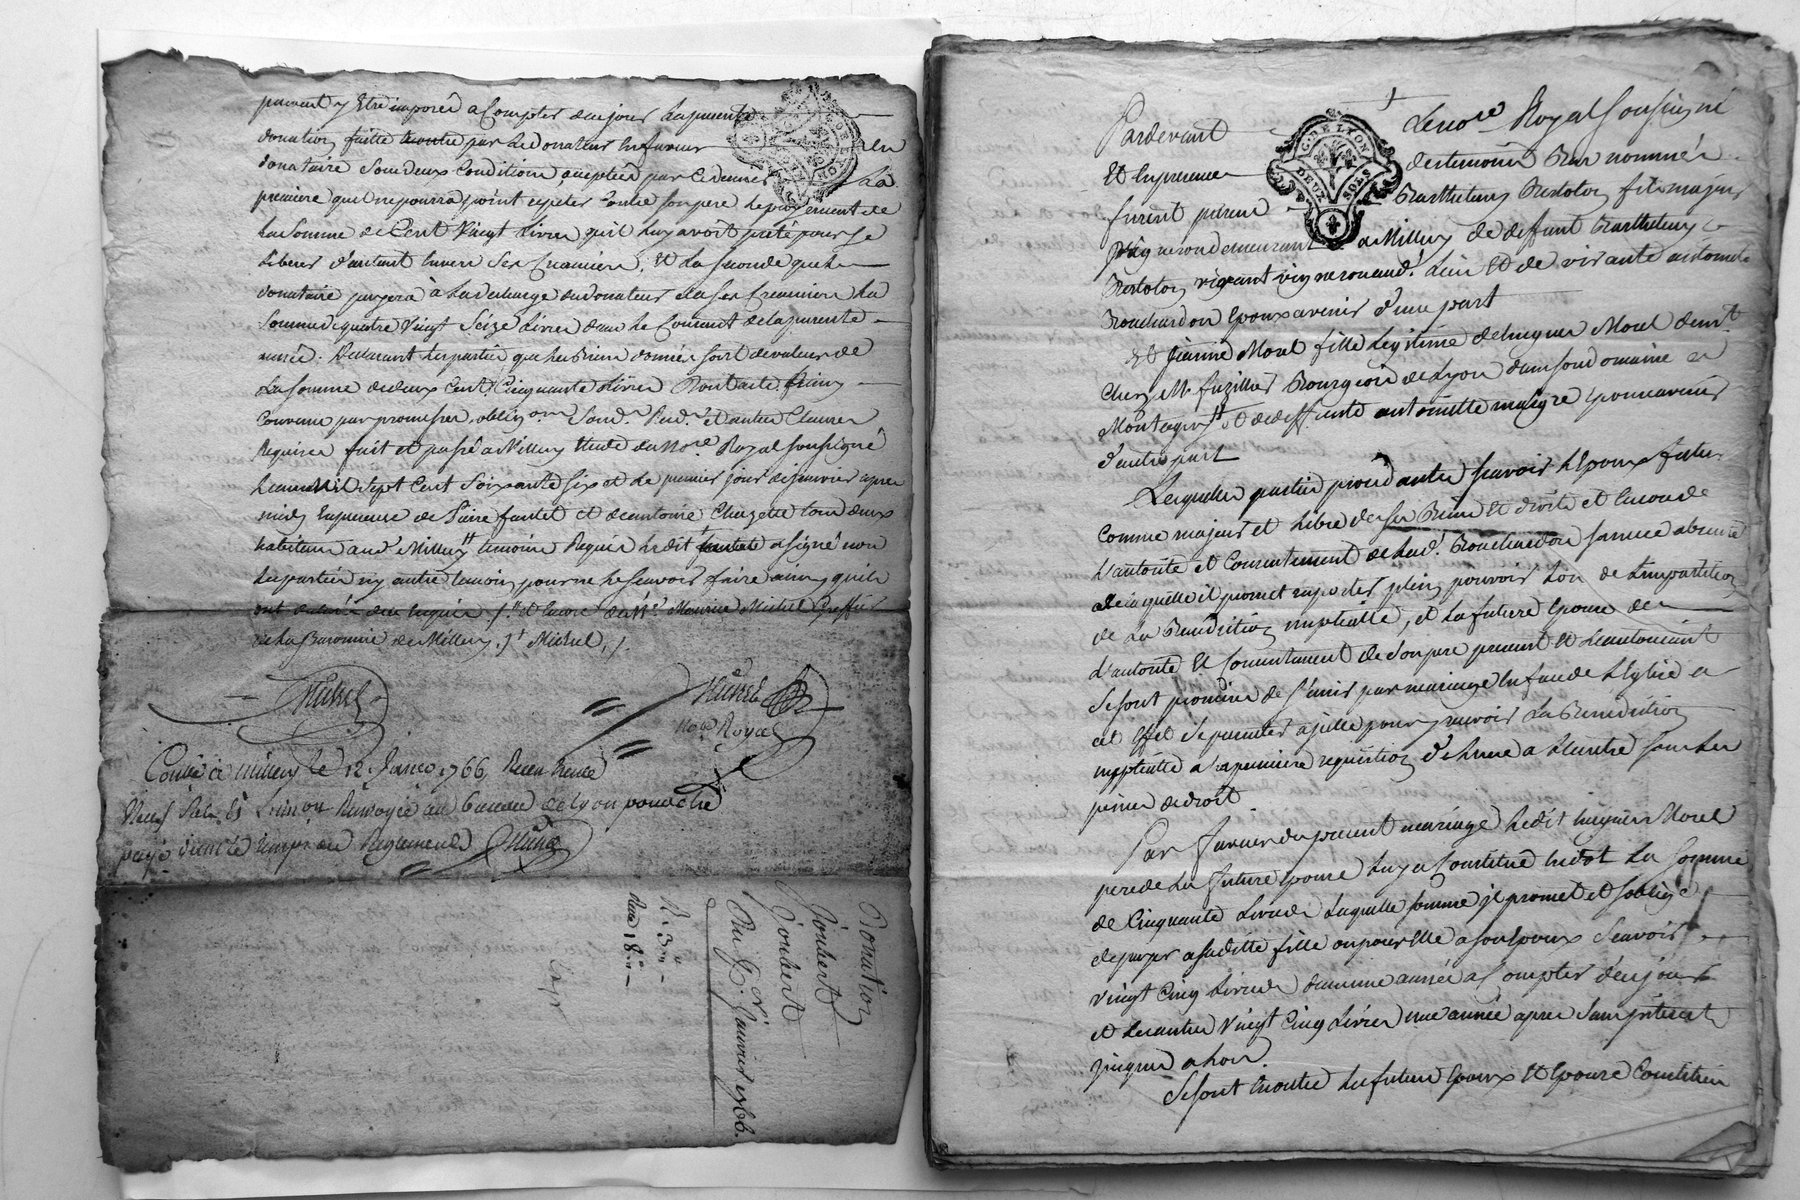 peuvent y Etre imposés a Compter de ce jour La presente
donation faitte par Le donateur En faveur du
donataire Sous deux Conditions acceptées par Ce dernier La
premiere quil ne pourra point repeter Contre Son pere le payement de
La Somme de Cent Vingt Livres quil Luy avoit preté pour Se
Liberer d'autant Envers Ses Creanciers, Et La Seconde que Le
donataire payera à La decharge du donateur a Ses Creanciers La
Somme de quatre Vingt Seize Livres dans le Courant de la presente
année. Declarant Les parties que Les Biens donnés Sont de valeur de
La Somme de deux Cent Cinquante Livres Dont acte Ainsy
Convenu par promesses, oblig.ons Soum.s Ren.s Et autres Clauses
Requises fait et passé a Millery Etude du No.re Royal Soussigné
L'an Mil Sept Cent Soixante Six et Le premier jour de janvier apres
midy En presence de Pierre et de antoine Chazette tous deux
habitans aud. Millery temoins Requis Ledit a Signé non
Les parties ny autre temoin pour ne Le Scavoir faire ainsy quils
ont declaré de ce Enquis /. Et Encore de M.e Maurice Michel Greffier
de La Baronnie de Millery /. Michel /.
Michel
Michel
No.re Royal
Con.lé à Millery le 12. Janv. 1766, Reçu Trente
Neuf Sols
Renvoyé au Bureau de Lyon pour etre
payé dans le temps du Reglement Michel
Donation
Joubert
à
Joubert
Du 1.er Janvier 1766.
Pardevant Le no.re Royal Soussigné
Et En presence des temoins Bas nommés
furent presens Barthelemy Bertholon fils majeur
Vigneron demeurant a Millery de deffunt Barthelemy
Bertholon vivant vigneron aud. Lieu Et de vivante antoinette
Bouchardon Epoux avenir d'une part
Et Jeanne Morel fille Legitime de Morel dem.t
Chez M. fuzillier Bourgeois de Lyon dans Son domaine a
Montagny Et de deffunte antoinette maigre Epouse avenir
d'autre part
Lesquelles parties procedantes Scavoir L'Epoux futur
Comme majeur et Libre de Ses Biens Et droits et Encore de
L'autorité et Consentement de Lad. Bouchardon Sa mere absente
de laquelle il promet raporter plein pouvoir Lors de L'impartition
de La Benediction nuptialle, et La future Epouse de
L'autorité Et Consentement de Son pere present Et L'autorisant
Se Sont promis de S'unir par mariage En face de L'Eglise a
cet Effet Se presenter a jcelle pour y recevoir La Benediction
nupptialle a La premiere requisition de L'un a L'autre Sous Les
peines de droit
Par faveur du present mariage Ledit Morel
pere de La future Epouse Luy a Constitué En dot La Somme
de Cinquante Livres Laquelle Somme jl promet et S'oblige
de payer a Sa ditte fille ou pour Elle a Son Epoux Scavoir
Vingt Cinq Livres dans une année a Compter de ce jour
et Les autres Vingt Cinq Livres une année apres Sans jnterest
jusques a Lors
Se Sont En outre Les futurs Epoux Et Epouse Constitués
G. DE LYON
DEUX SOLS